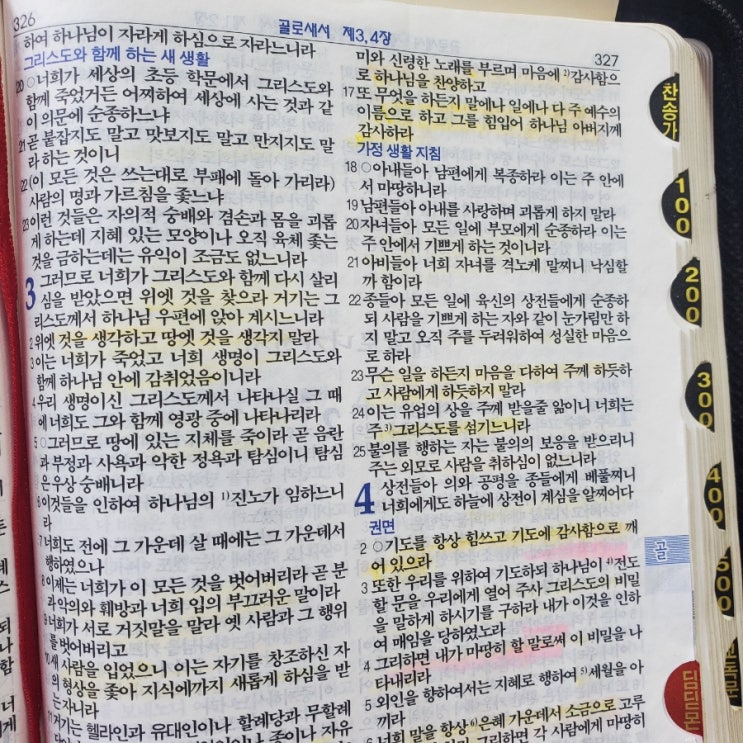 326
골로새서 제3,4장
327
하여 하나님이 자라게 하심으로 자라느니라
그리스도와 함께 하는 새 생활
20 ○너희가 세상의 초등 학문에서 그리스도와
함께 죽었거든 어찌하여 세상에 사는 것과 같
이 의문에 순종하느냐
21 곧 붙잡지도 말고 맛보지도 말고 만지지도 말
라 하는 것이니
22 (이 모든 것은 쓰는대로 부패에 돌아 가리라)
사람의 명과 가르침을 좇느냐
23 이런 것들은 자의적 숭배와 겸손과 몸을 괴롭
게 하는데 지혜 있는 모양이나 오직 육체 좇는
것을 금하는데는 유익이 조금도 없느니라
3 그러므로 너희가 그리스도와 함께 다시 살리
심을 받았으면 위엣 것을 찾으라 거기는 그
리스도께서 하나님 우편에 앉아 계시느니라
2 위엣 것을 생각하고 땅엣 것을 생각지 말라
3 이는 너희가 죽었고 너희 생명이 그리스도와
함께 하나님 안에 감취었음이니라
4 우리 생명이신 그리스도께서 나타나실 그 때
에 너희도 그와 함께 영광 중에 나타나리라
5 ○그러므로 땅에 있는 지체를 죽이라 곧 음란
과 부정과 사욕과 악한 정욕과 탐심이니 탐심
은 우상 숭배니라
6 이것들을 인하여 하나님의 1)진노가 임하느니
라
7 너희도 전에 그 가운데 살 때에는 그 가운데서
행하였으나
8 이제는 너희가 이 모든 것을 벗어버리라 곧 분
과 악의와 훼방과 너희 입의 부끄러운 말이라
9 너희가 서로 거짓말을 말라 옛 사람과 그 행위
를 벗어버리고
10 새 사람을 입었으니 이는 자기를 창조하신 자
의 형상을 좇아 지식에까지 새롭게 하심을 받
는 자니라
11 거기는 헬라인과 유대인이나 할례당과 무할례
종이나 자유
미와 신령한 노래를 부르며 마음에 2)감사함으
로 하나님을 찬양하고
17 또 무엇을 하든지 말에나 일에나 다 주 예수의
이름으로 하고 그를 힘입어 하나님 아버지께
감사하라
가정 생활 지침
18 ○아내들아 남편에게 복종하라 이는 주 안에
서 마땅하니라
19 남편들아 아내를 사랑하며 괴롭게 하지 말라
20 자녀들아 모든 일에 부모에게 순종하라 이는
주 안에서 기쁘게 하는 것이니라
21 아비들아 너희 자녀를 격노케 말찌니 낙심할
까 함이라
22 종들아 모든 일에 육신의 상전들에게 순종하
되 사람을 기쁘게 하는 자와 같이 눈가림만 하
지 말고 오직 주를 두려워하여 성실한 마음으
로 하라
23 무슨 일을 하든지 마음을 다하여 주께 하듯하
고 사람에게 하듯하지 말라
24 이는 유업의 상을 주께 받을줄 앎이니 너희는
주 3)그리스도를 섬기느니라
25 불의를 행하는 자는 불의의 보응을 받으리니
주는 외모로 사람을 취하심이 없느니라
4 상전들아 의와 공평을 종들에게 베풀찌니
너희에게도 하늘에 상전이 계심을 알찌어다
권면
2 ○기도를 항상 힘쓰고 기도에 감사함으로 깨
어 있으라
3 또한 우리를 위하여 기도하되 하나님이 4)전도
할 문을 우리에게 열어 주사 그리스도의 비밀
을 말하게 하시기를 구하라 내가 이것을 인하
여 매임을 당하였노라
4 그리하면 내가 마땅히 할 말로써 이 비밀을 나
타내리라
5 외인을 향하여서는 지혜로 행하여 5)세월을 아
끼라
6 너희 말을 항상 은혜 가운데서 소금으로 고루
그리하면 각 사람에게 마땅히
찬송가
100
200
300
400
골
500
교독문
딤딛몬